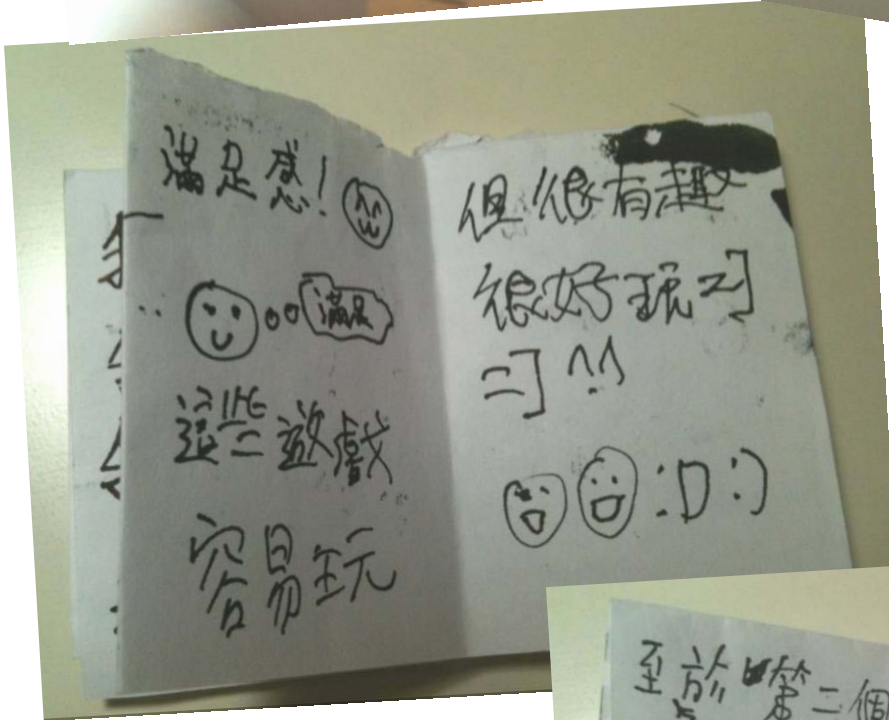 滿足感！
滿足
這些遊戲
容易玩
但很有趣
很好玩=]
=] ^.^
:D :)
至於第二個